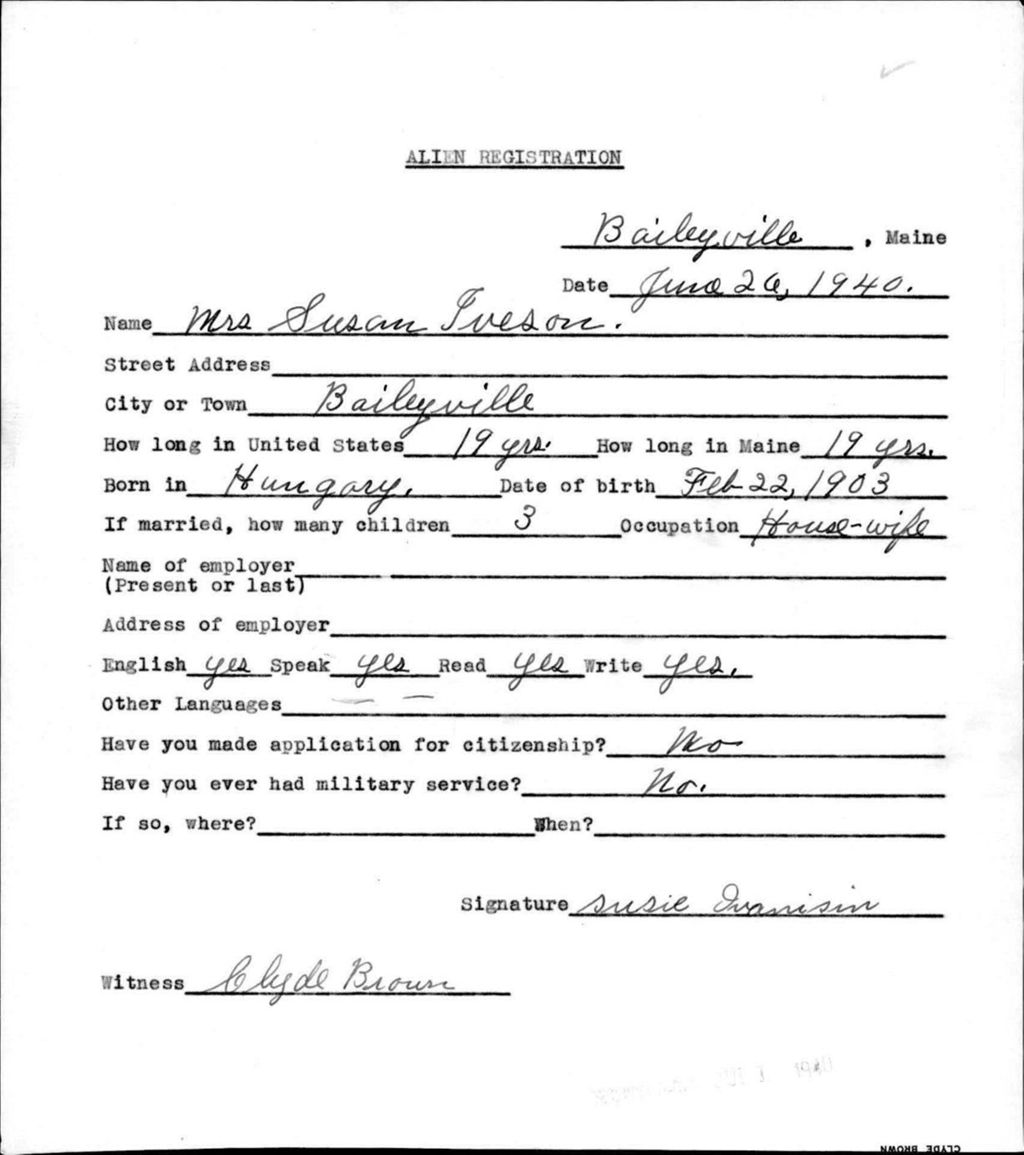 ALIEN REGISTRATION
Baileyville, Maine
Date June 26, 1940.
Name Mrs Susan Iveson.
Street Address
City or Town Baileyville
How long in United States 19 yrs. How long in Maine 19 yrs.
Born in Hungary. Date of birth Feb 22, 1903
If married, how many children 3 Occupation House-wife
Name of employer
(Present or last)
Address of employer
English yes Speak yes Read yes Write yes.
Other Languages — —
Have you made application for citizenship? No
Have you ever had military service? No.
If so, where? When?
Signature Susie Ivanisin
Witness Clyde Brown
CLYDE BROWN